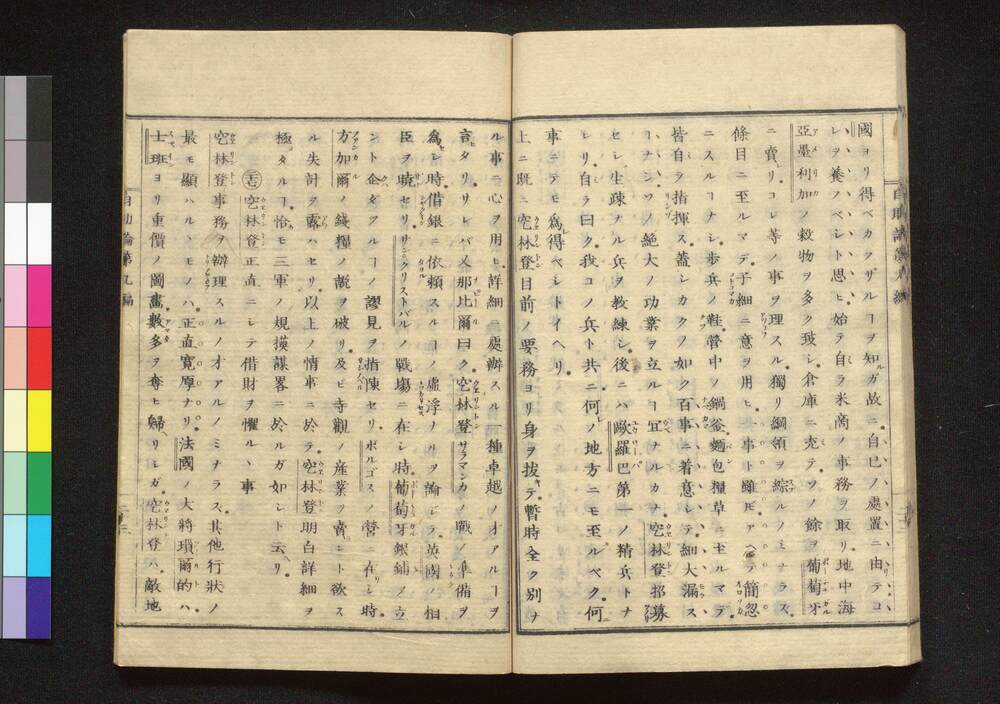 國ヨリ得ベカラザルヿヲ知ルガ故ニ自巳ノ處置ニ由テコ
レヲ養ノベシト思ヒ始テ自ラ米商ノ事務ヲ取リ地中海
亞墨利加ノ穀物ヲ多ク玻シ倉庫ニ充テソノ餘ヲ葡萄牙
ニ賣リコレ等ノ事ヲ理スル獨リ綱領ヲ綜ルノミナラス
條目ニ至ルマデ子細ニ意ヲ用ヒ事ト雖𪜈アヘテ簡忽
ニスルヿナシ歩兵ノ鞋營中ノ鍋釜麵包糧草ニ至ルマデ
皆自ラ指揮ス蓋シカクノ如ク百事ニ着意シテ細大漏ス
ヿナシソノ絶大ノ功業ヲ立ルヿ宜ナルカナ空林登招募
セシ生疎ナル兵ヲ教練シ後ニハ歐羅巴第一ノ精兵トナ
レリ自ラ曰ク我コノ兵ト共ニ何ノ地方ニモ至ルベク何
事ニテモ為シ得ベシトイヘリ
上ニ既ニ空林登目前ノ要務ヨリ身ヲ拔テ暫時全ク別ナ
ル事ニ心ヲ用ヒ詳細ニ處辦スル一種卓越ノ才アルヿヲ
言タリシレバ又那比爾曰ク空林登サラマンカノ戰ノ準備ヲ
為シ時借銀ニ依頼スルヿノ虛浮ナルヲ論ジテ英國ノ相
臣ヲ曉セリサンクリストバルノ戰場ニ在シ時葡萄牙銀鋪ノ立
ント企タツルヿノ謬見ヲ指陳セリボルゴスノ營ニ在シ時
方加爾ノ錢糧ノ說ヲ破リ及ビ寺觀ノ産業ヲ賣ント欲ス
ル失計ヲ露ハセリ以上ノ情事ニ於テ空林登明白詳細ヲ
極タルヿ恰モ三軍ノ規摸謀畧ニ於ルガ如シト云リ
空林登正直ニシテ借財ヲ懼ルヽ事
空林登事務ヲ辦理スルノ才アルノミナラス其他行狀ノ
最モ顯ハルヽモノハ正直寛厚ナリ法國ノ大將瑣爾的ハ
士班ヨリ重價ノ圖畵數多ヲ奪ヒ歸リシガ空林登ハ敵地
自助論第九編